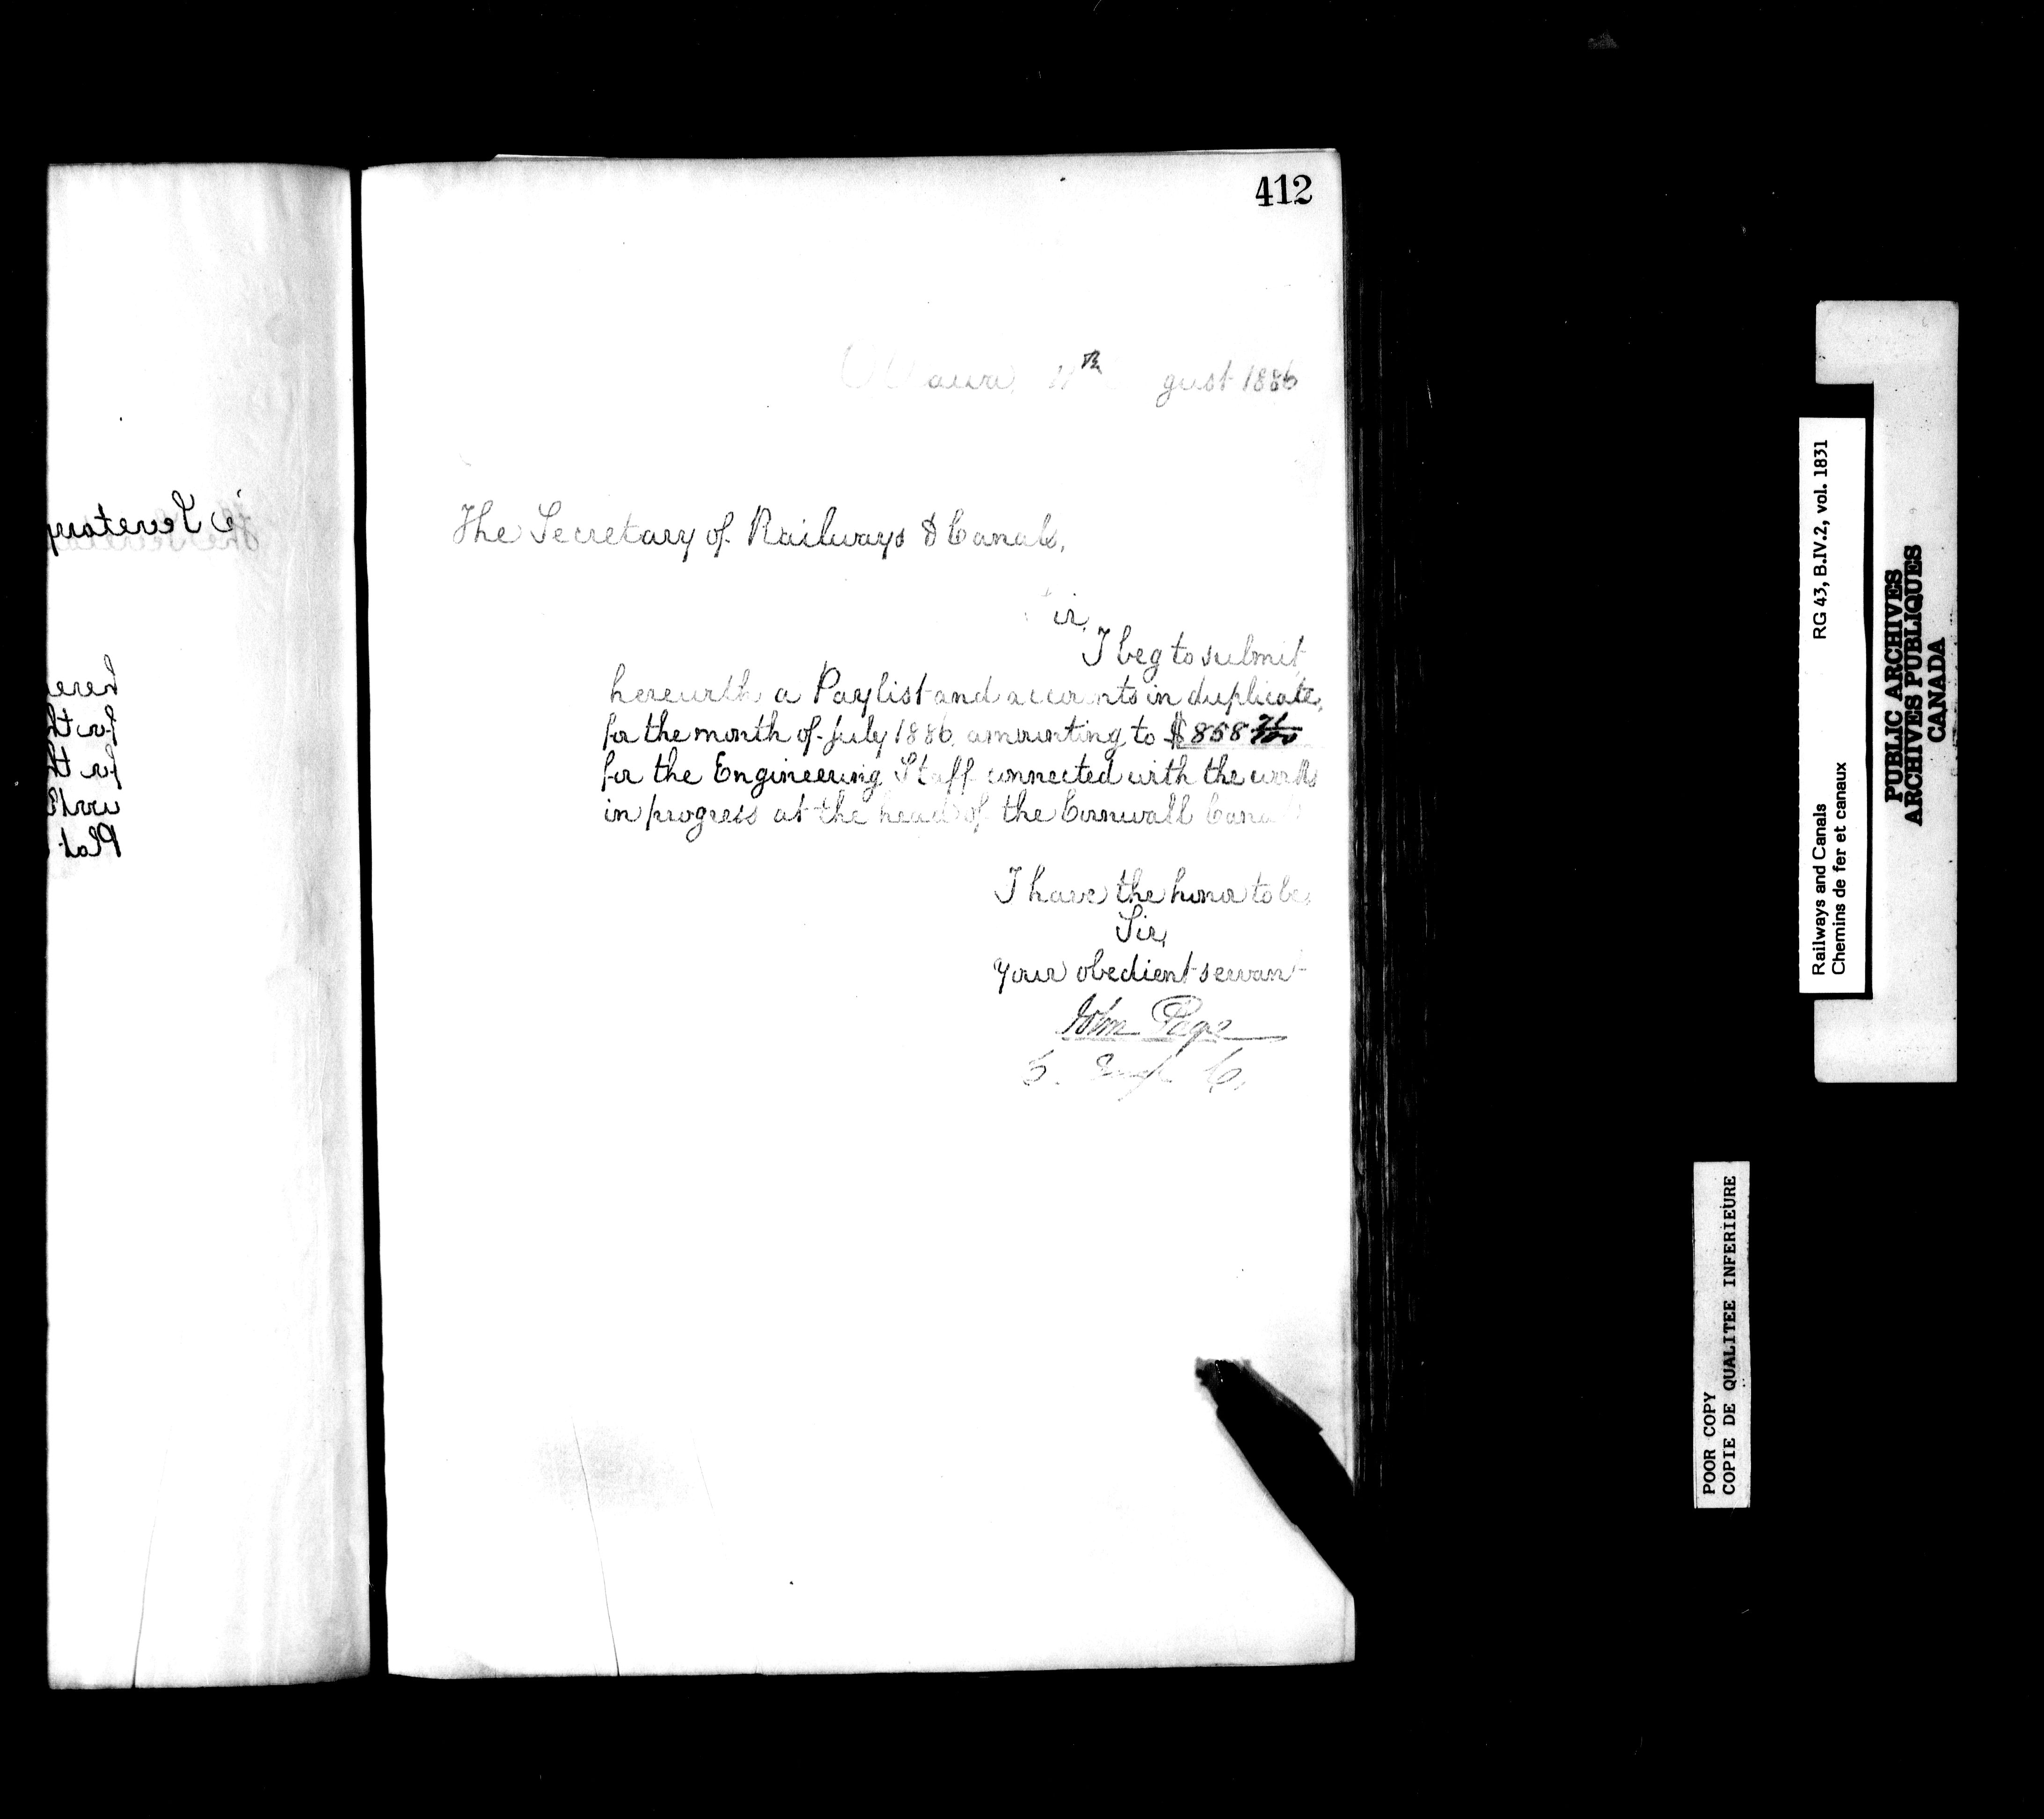 412
Ottawa, 11th August 1886
The Secretary of Railways & Canals,
Sir,
I beg to submit
herewith a Paylist and accounts in duplicate,
for the month of July 1886, amounting to $858
for the Engineering Staff connected with the works
in progress at the head of the Cornwall Canal
I have the honor to be,
Sir,
Your obedient servant
John Page
RG 43, B.IV.2, vol. 1831
Railways and Canals
Chemins de fer et canaux
PUBLIC ARCHIVES
ARCHIVES PUBLIQUES
CANADA
POOR COPY
COPIE DE QUALITEE INFERIEURE